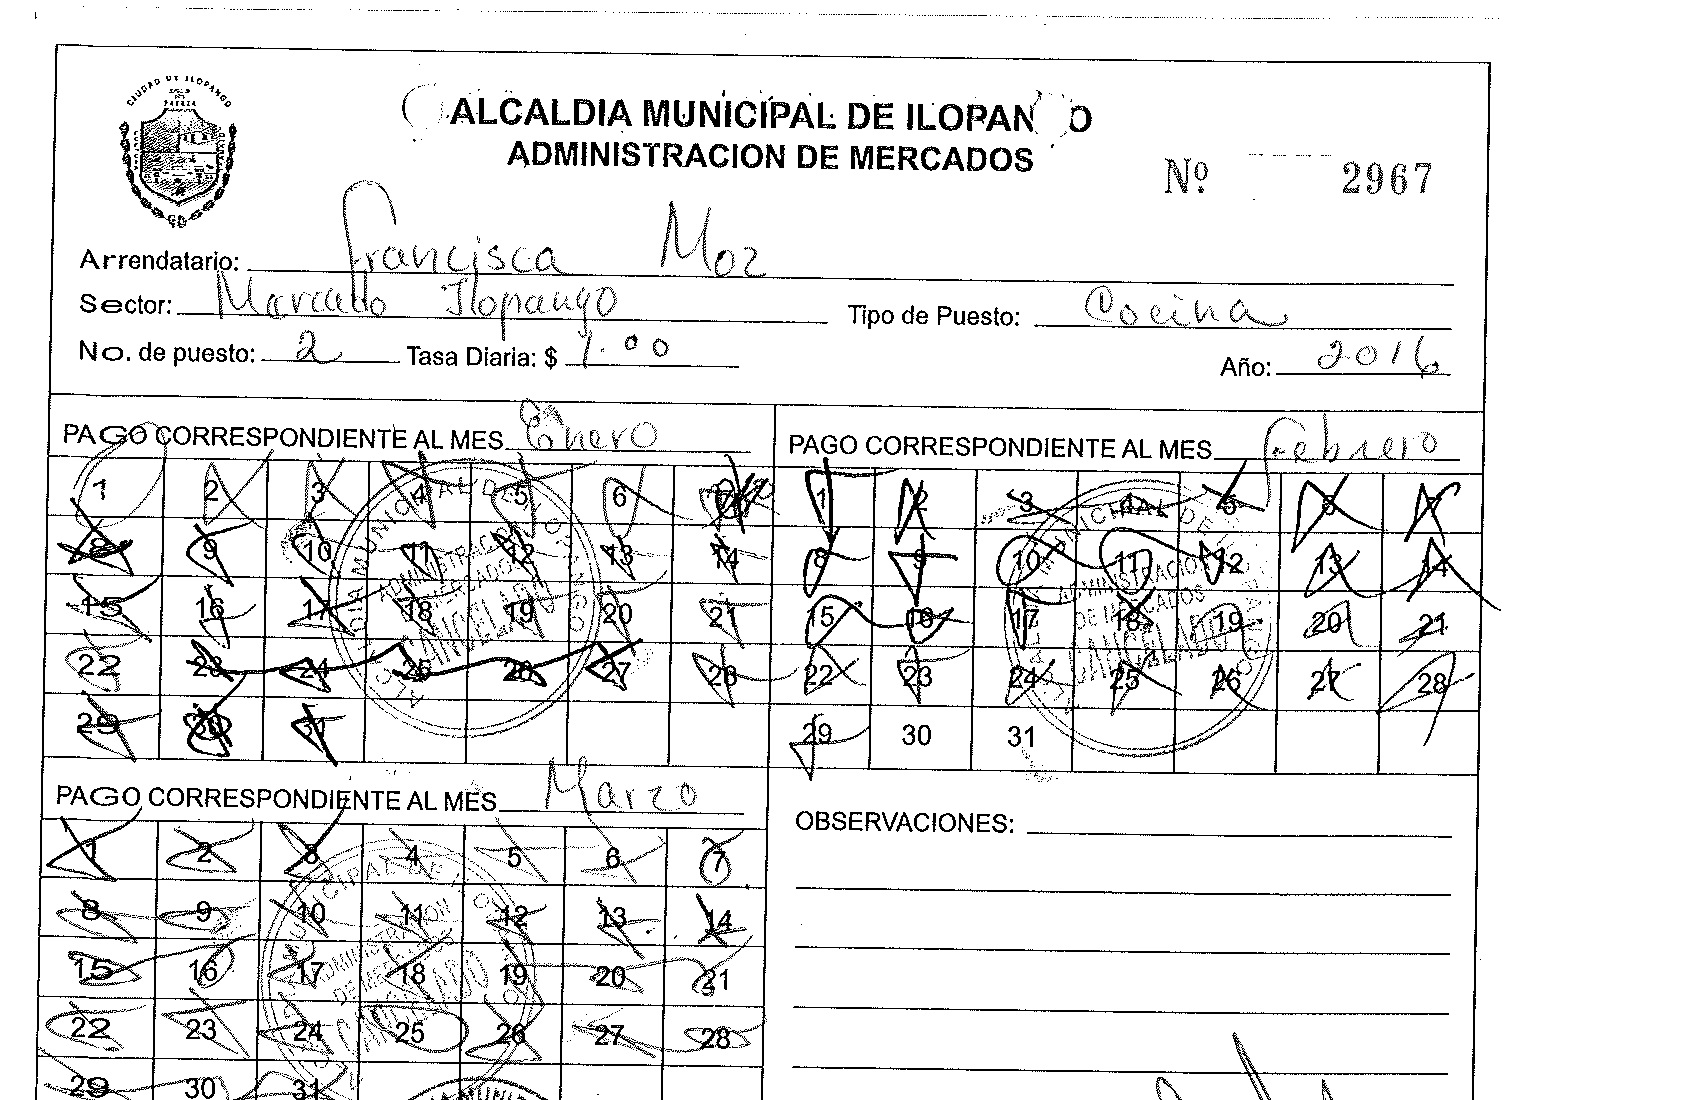 CIUDAD DE ILOPANGO
ALCALDIA MUNICIPAL DE ILOPANGO
ADMINISTRACION DE MERCADOS
Nº 2967
Arrendatario: Francisca Moz
Sector: Mercado Ilopango Tipo de Puesto: Cocina
No. de puesto: 2 Tasa Diaria: $ 1.00 Año: 2016
PAGO CORRESPONDIENTE AL MES Enero
1 2 3 4 5 6 7
8 9 10 11 12 13 14
15 16 17 18 19 20 21
22 23 24 25 26 27 28
29 30 31
ADMINISTRACION
DE MERCADOS
CANCELADO
PAGO CORRESPONDIENTE AL MES Febrero
1 2 3 4 5 6 7
8 9 10 11 12 13 14
15 16 17 18 19 20 21
22 23 24 25 26 27 28
29 30 31
ADMINISTRACION
DE MERCADOS
CANCELADO
PAGO CORRESPONDIENTE AL MES Marzo
1 2 3 4 5 6 7
8 9 10 11 12 13 14
15 16 17 18 19 20 21
22 23 24 25 26 27 28
29 30 31
ADMINISTRACION
DE MERCADOS
CANCELADO
OBSERVACIONES: